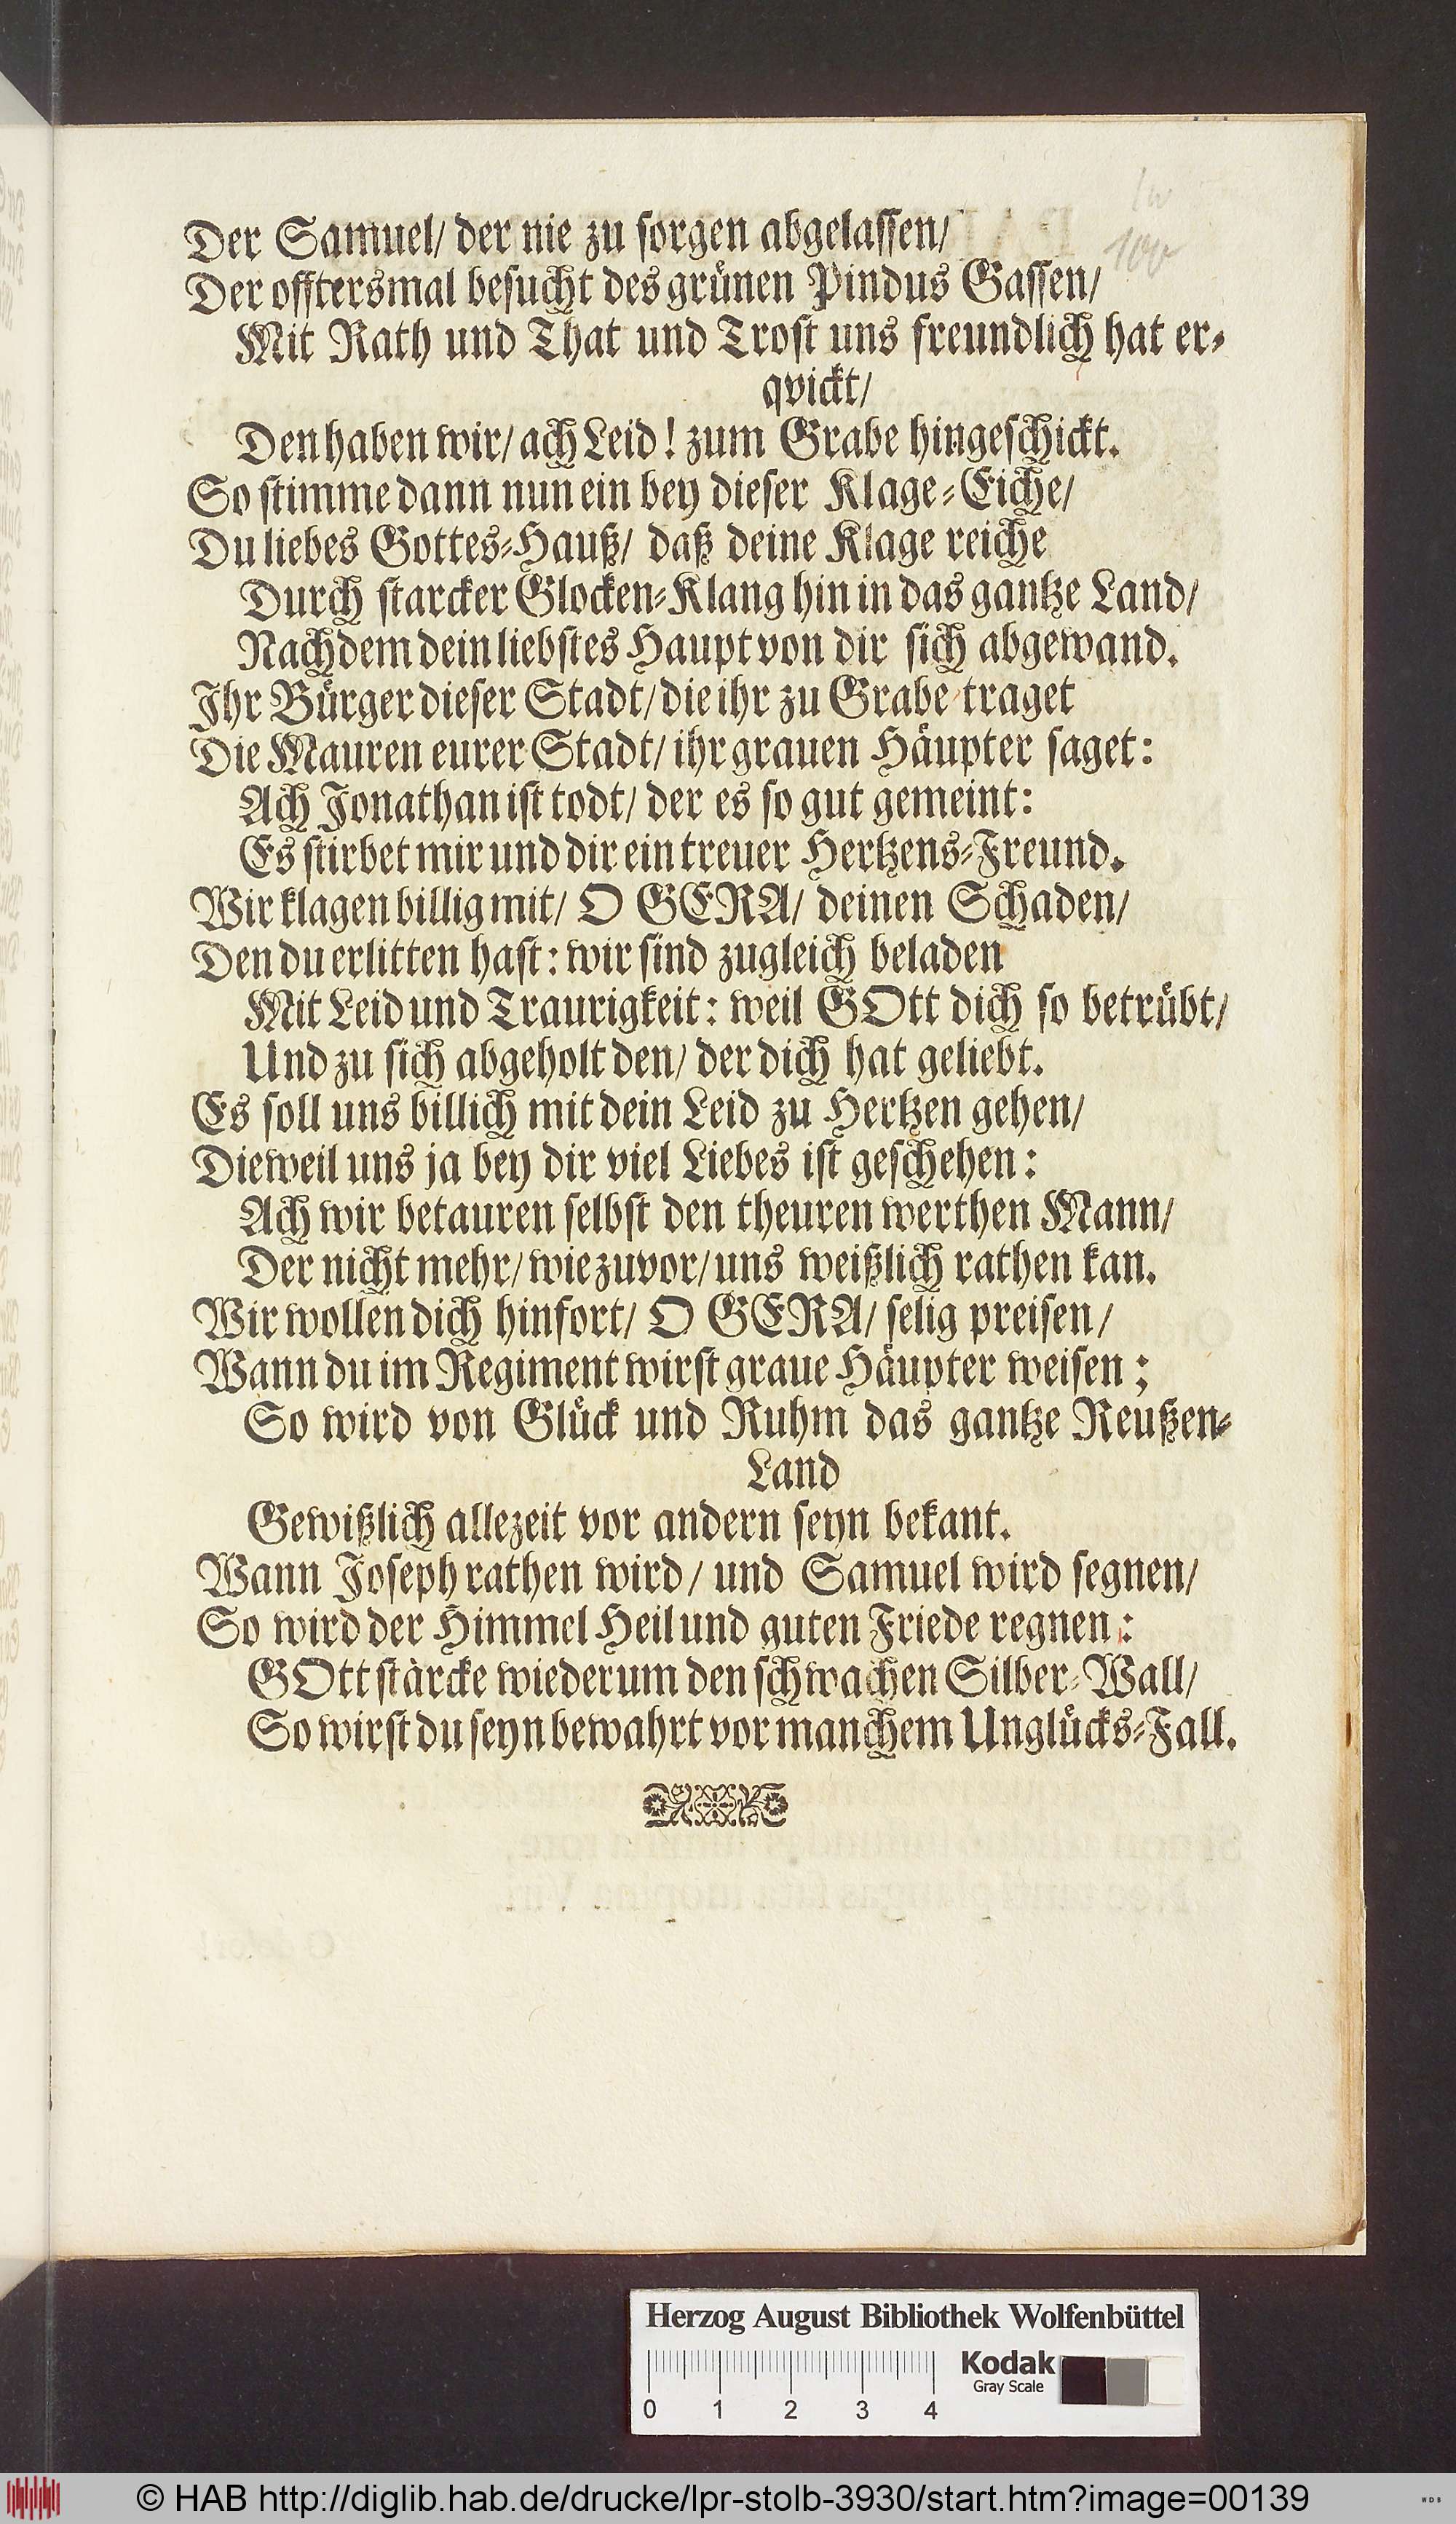 Der Samuel/ der nie zu sorgen abgelassen/
Der offtersmal besucht des grünen Pindus Gassen/
Mit Rath und That und Trost uns freundlich hat er-
qvickt/
Den haben wir/ ach Leid! zum Grabe hingeschickt.
So stimme dann nun ein bey dieser Klage-Eiche/
Du liebes Gottes-Hauß/ daß deine Klage reiche
Durch starcker Glocken-Klang hin in das gantze Land/
Nachdem dein liebstes Haupt von dir sich abgewand.
Ihr Bürger dieser Stadt/ die ihr zu Grabe traget
Die Mauren eurer Stadt/ ihr grauen Häupter saget:
Ach Jonathan ist todt/ der es so gut gemeint:
Es stirbet mir und dir ein treuer Hertzens-Freund.
Wir klagen billig mit/ O GERA/ deinen Schaden/
Den du erlitten hast: wir sind zugleich beladen
Mit Leid und Traurigkeit: weil GOtt dich so betrübt/
Und zu sich abgeholt den/ der dich hat geliebt.
Es soll uns billich mit dein Leid zu Hertzen gehen/
Dieweil uns ja bey dir viel Liebes ist geschehen:
Ach wir betauren selbst den theuren werthen Mann/
Der nicht mehr/ wie zuvor/ uns weißlich rathen kan.
Wir wollen dich hinfort/ O GERA/ selig preisen/
Wann du im Regiment wirst graue Häupter weisen;
So wird von Glück und Ruhm das gantze Reußen-
Land
Gewißlich allezeit vor andern seyn bekant.
Wann Joseph rathen wird/ und Samuel wird segnen/
So wird der Himmel Heil und guten Friede regnen:
GOtt stärcke wiederum den schwachen Silber-Wall/
So wirst du seyn bewahrt vor manchem Unglücks-Fall.
Herzog August Bibliothek Wolfenbüttel
0 1 2 3 4
Kodak
Gray Scale
© HAB http://diglib.hab.de/drucke/lpr-stolb-3930/start.htm?image=00139
WDB